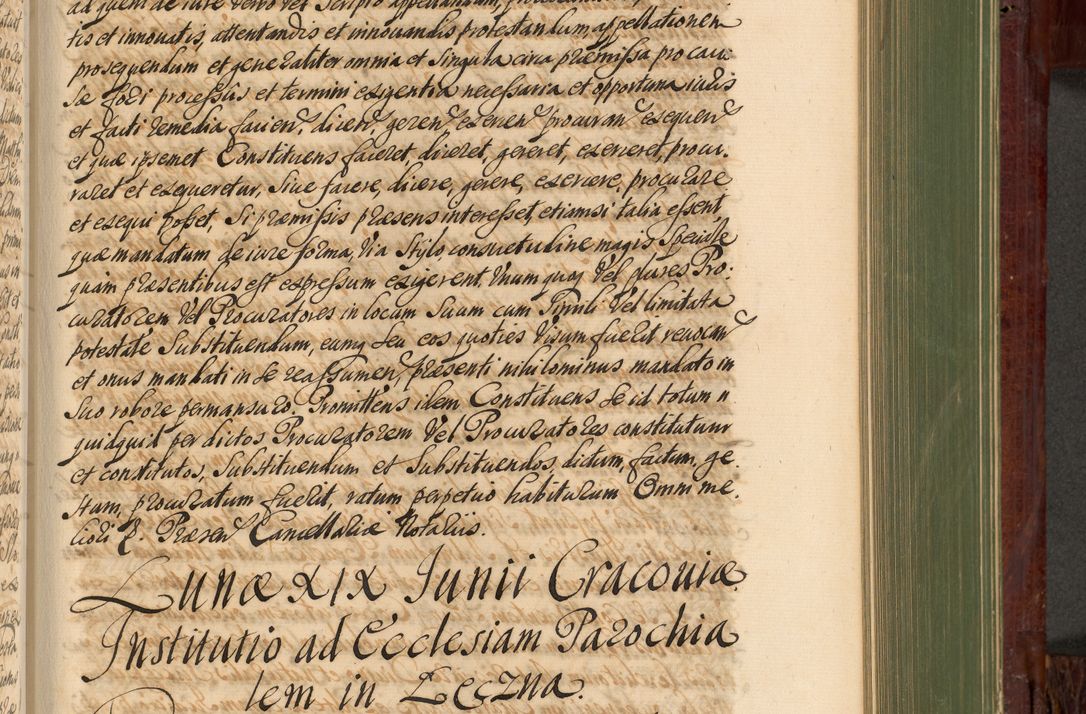 ad quem de iure verbo vel Scripto appellandum,
tis et innovatis, attentandis et innovandis protestandum, appellationem
prosequendum et generaliter omnia et Singula circa præmissa pro cau:
sæ fori processus et termini exigentia necessaria et opportuna iuris
et facti remedia facien, dicen, geren exercen procuran exequen
et quæ ipsemet Constituens faceret, diceret, gereret, exerceret, procu:
raret et exequeretur, Sive facere, dicere, gerere, exercere, procurare
et exequi posset, Si præmissis præsens interesset, etiamsi talia essent,
quæ mandatum de iure forma, via Stylo, consuetudine magis Speciale
quàm præsentibus est expressum exigerent. Unum quoq Vel plures Pro:
curatorem Vel Procuratores in locum Suum cum Simili Vel limitata
potestate Substituendum, eumq seu eos quoties Visum fuerit revocan
et onus mandati in se reassumen, præsenti nihilominus mandato in
Suo robore permansuro. Promittens idem Constituens se id totum et
quidquid per dictos Procuratorem Vel Procuratores constitutum
et constitutos, Substituendum et Substituendos, dictum, factum, ge:
stum, procuratum fuerit, ratum perpetuo habiturum Omni me:
liori &. Præsen Cancellariæ Notariis.
Lunæ XIX Junii Cracoviæ
Institutio ad Ecclesiam Parochia
lem in Łeczna.